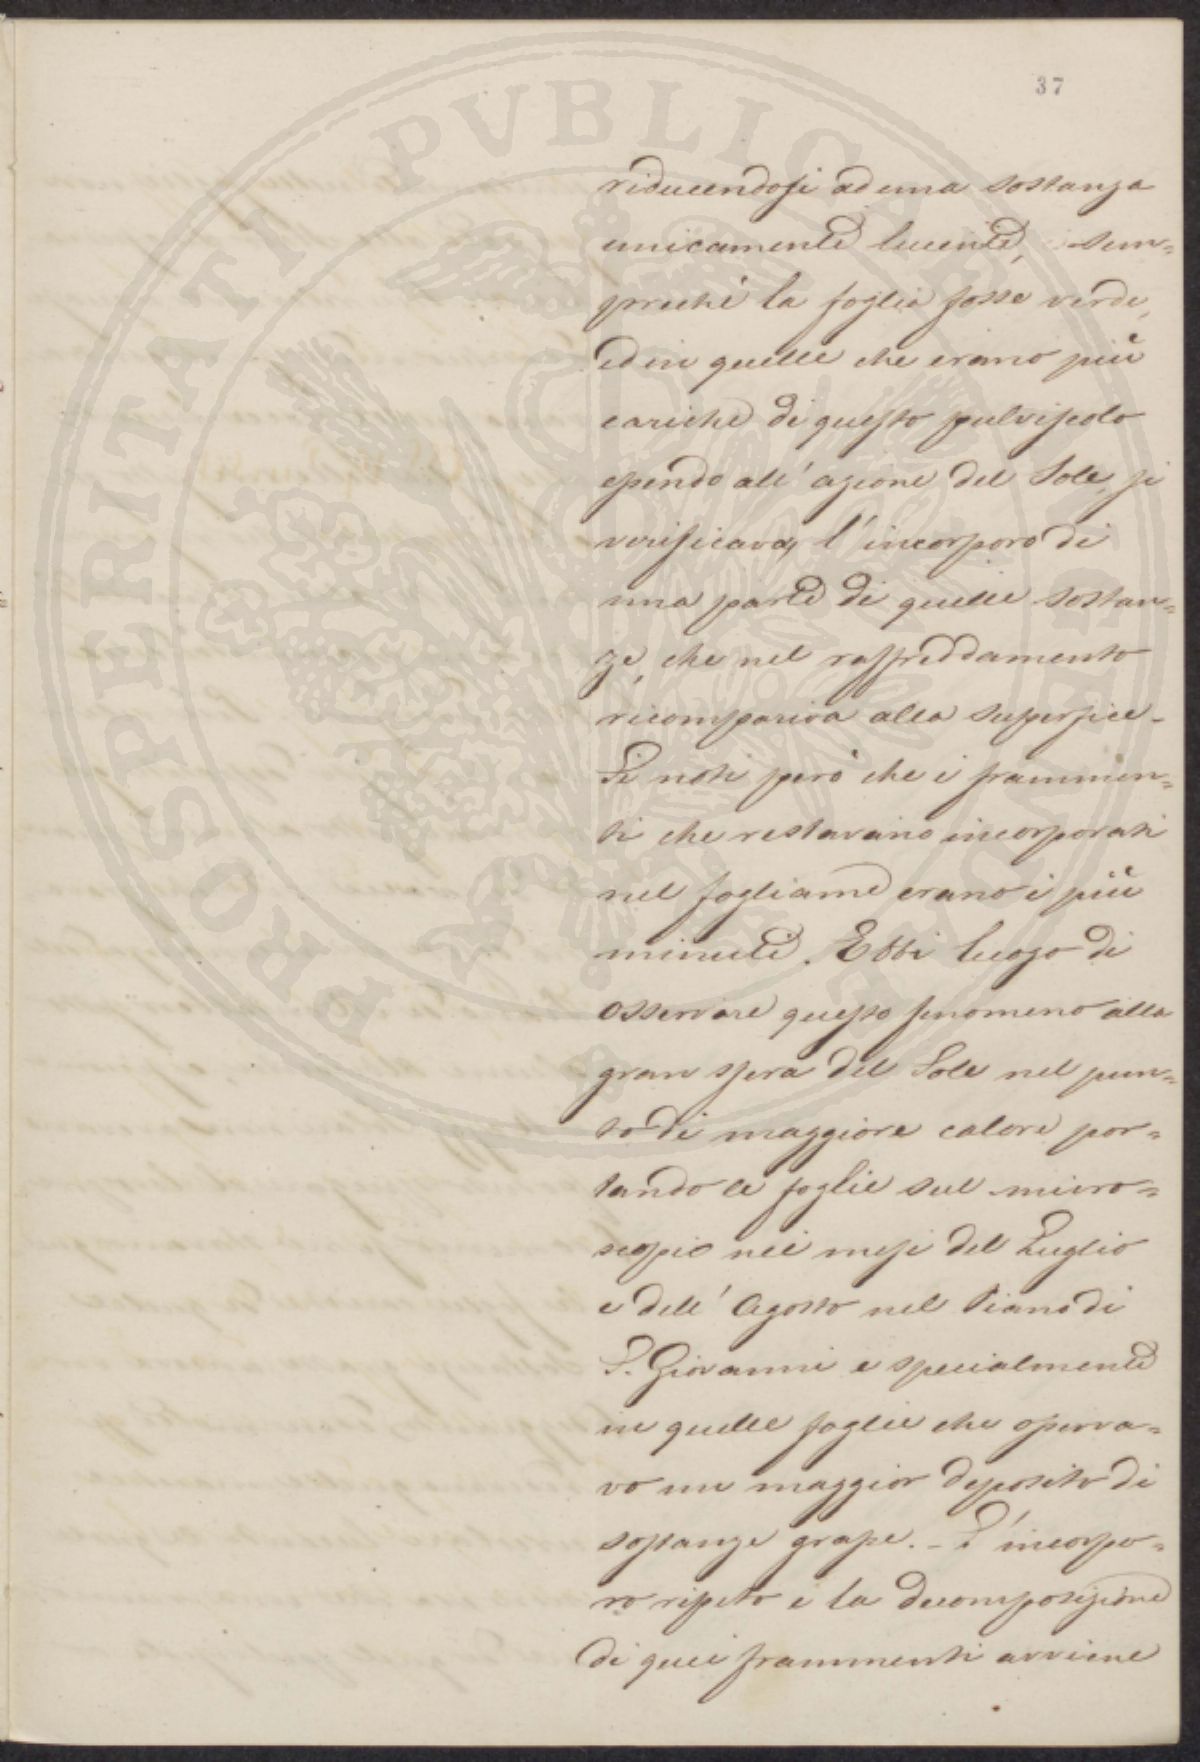 37
riducendosi ad una sostanza
unicamente lucente, sem=
preché la foglia fosse verde,
ed in quelle che erano più
cariche di questo pulviscolo
essendo all'azione del Sole, si
verificava, l'incorporo di
una parte di quelle sostan=
ze, che nel raffreddamento
ricompariva alla superfice -
Si noti però che i frammen=
ti che restavano incorporati
nel fogliame erano i più
minuti. Ebbi luogo di
osservare questo fenomeno alla
gran sfera del Sole nel pun=
to di maggiore calore por=
tando le foglie sul micro=
scopio nei mesi del Luglio
e dell'Agosto nel Piano di
S. Giovanni e specialmente
in quelle foglie che osserva=
vo un maggior deposito di
sostanze grasse. - L'incorpo=
ro ripeto e la decomposizione
di quei frammenti avviene
PROSPERITATI PVBLICAE